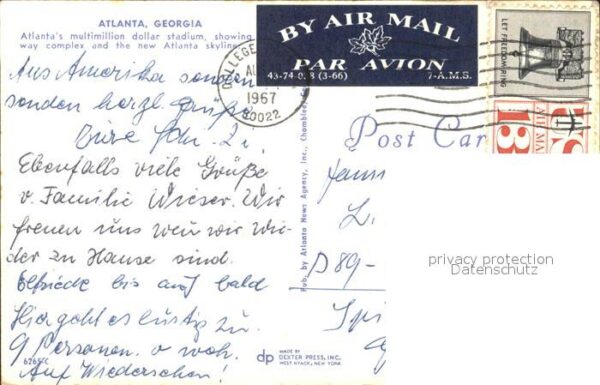 ATLANTA, GEORGIA
Atlanta's multimillion dollar stadium, showing
way complex and the new Atlanta skyline
BY AIR MAIL
PAR AVION
43-74-028 (3-66) 7-A.M.S.
COLLEGE
AU
1967
30022
LET FREEDOM RING
US
AIR MA
13
Aus Amerika senden
senden herzl. Grüße
Eure
Ebenfalls viele Grüße
v. Familie Wieser. Wir
freuen uns wenn wir wie-
der zu Hause sind.
Elfriede bis auf bald
Hier geht es lustig zu.
9 Personen.
Auf Wiedersehen!
Post Car
Fam
L.
D89-
Pub. by Atlanta News Agency, Inc., Chamblee
privacy protection
Datenschutz
6265-C
dp
MADE BY
DEXTER PRESS, INC.
WEST NYACK, NEW YORK